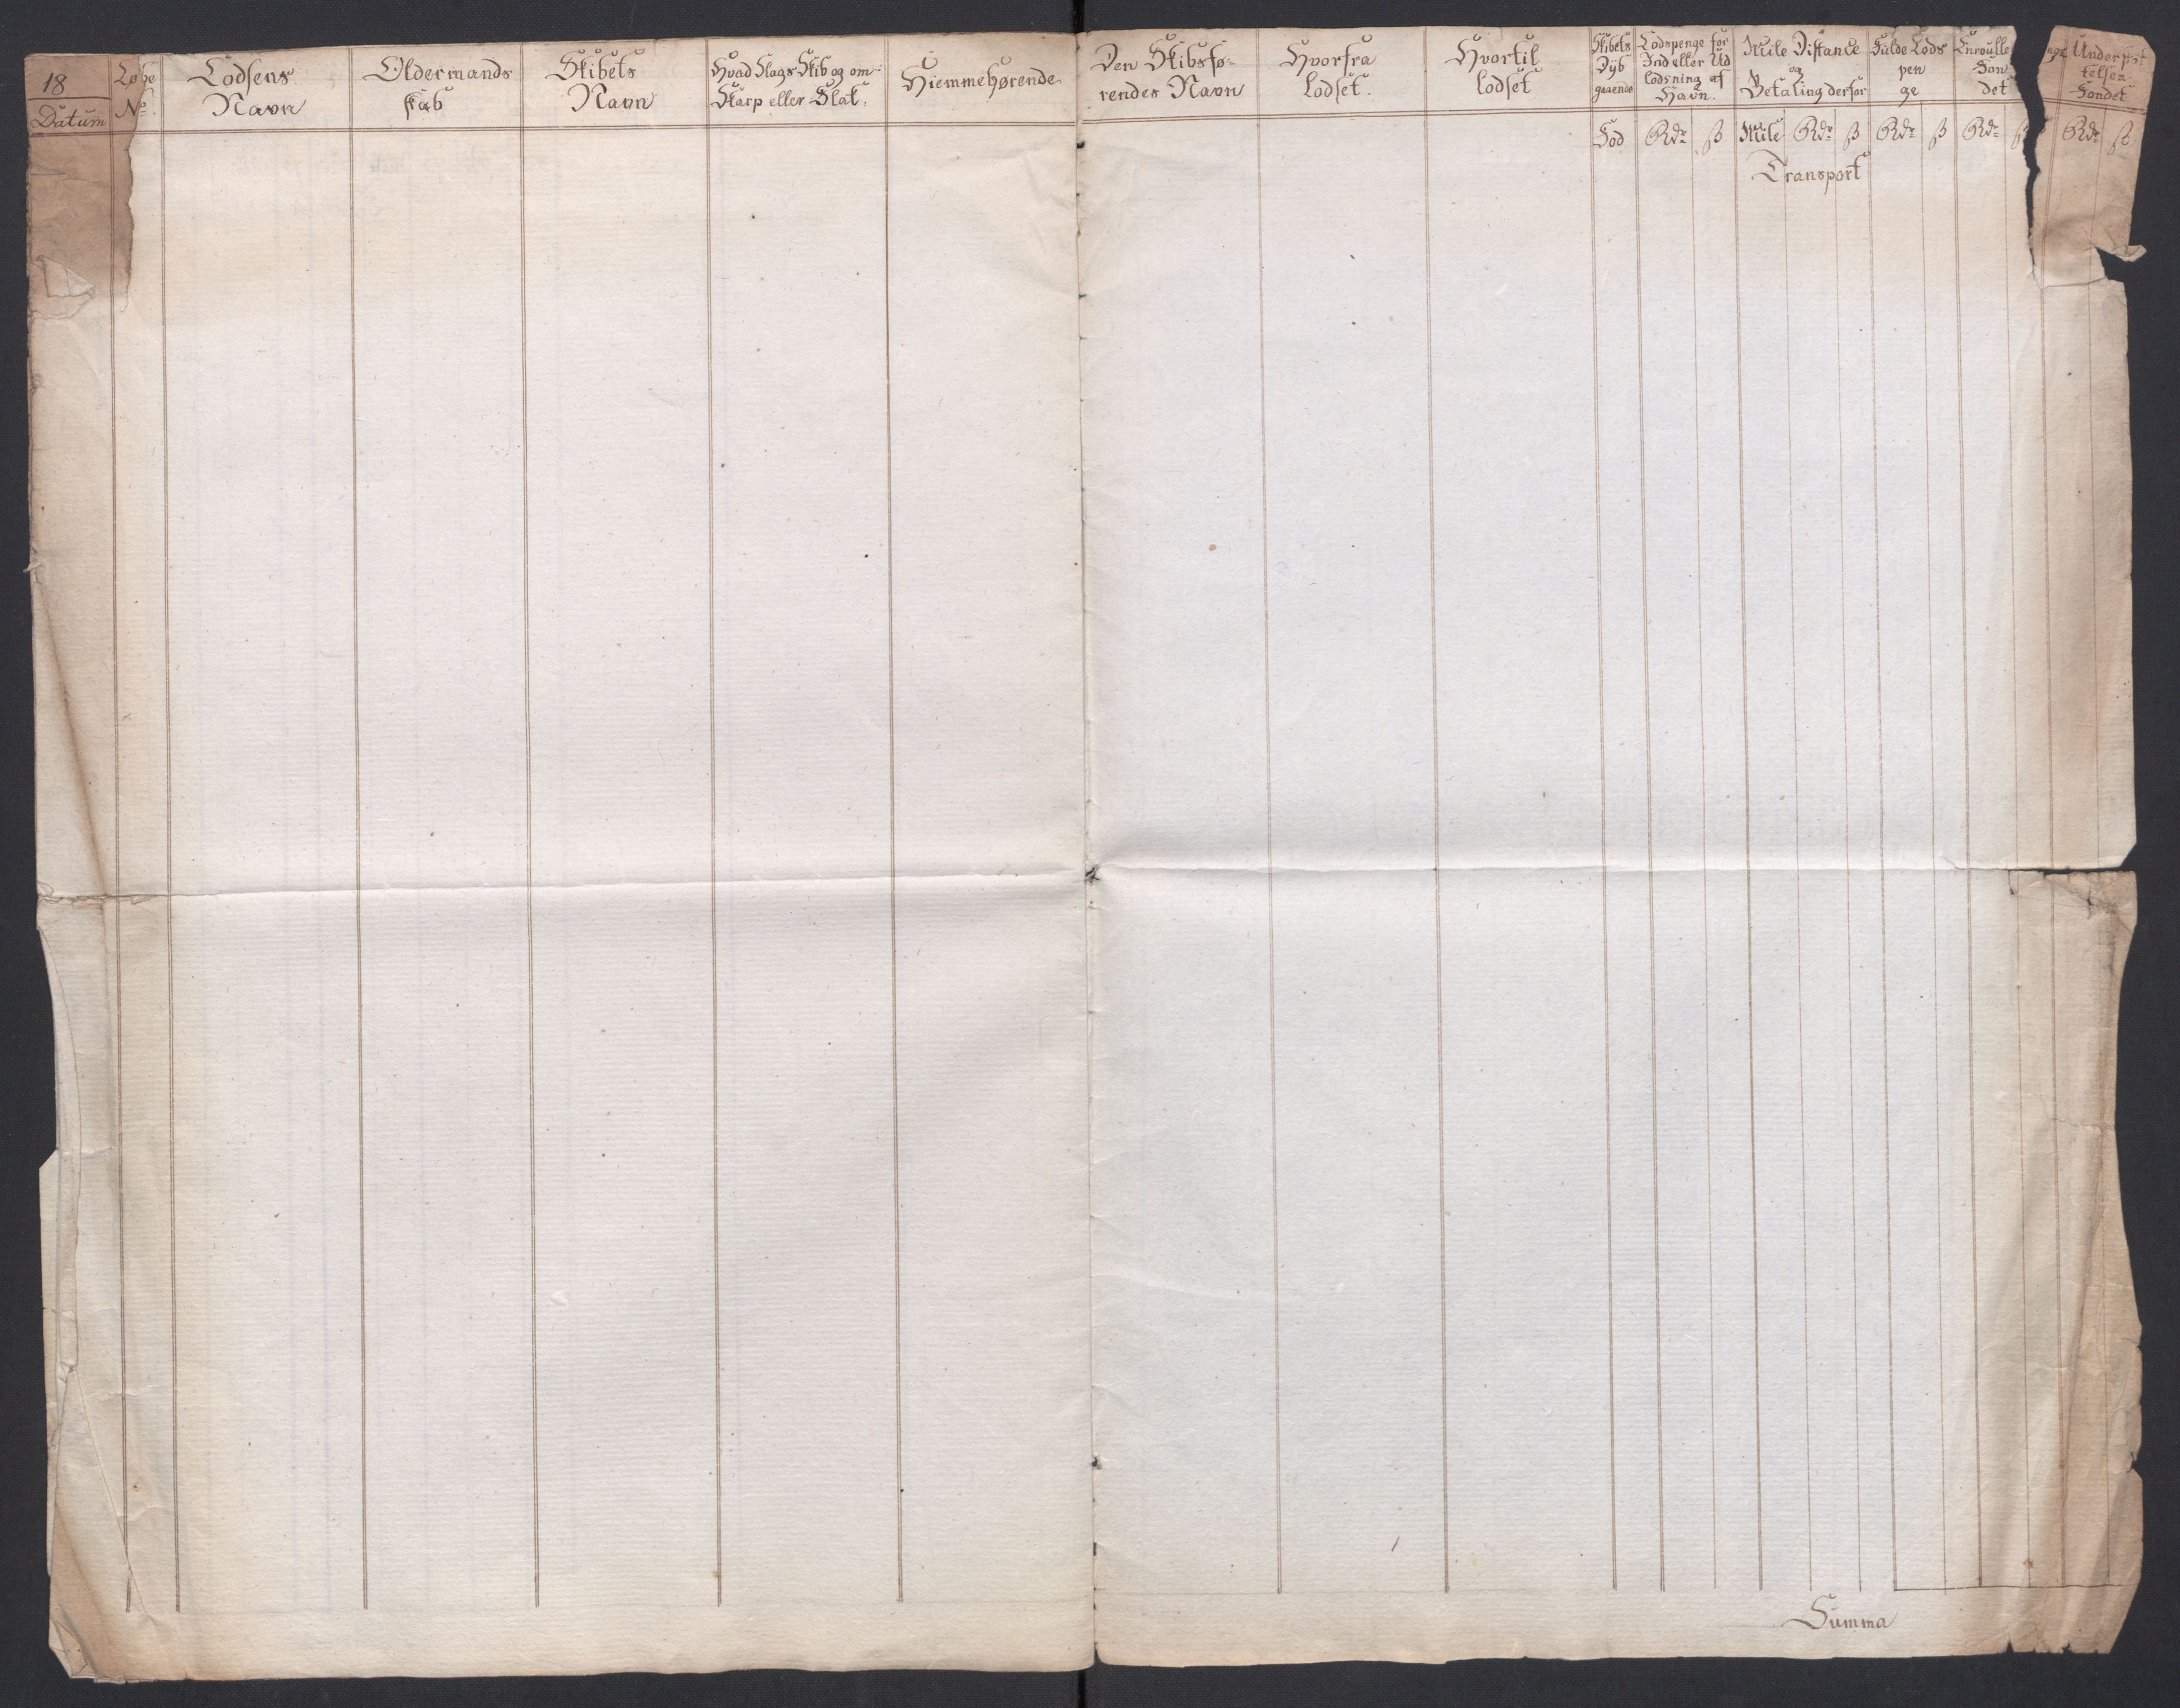 18
Datum
Løbe
No
Lodsens
Navn
Oldermands
skab
Skibets
Navn
Hvad Slags Skib og om
Skarp eller Flat.
Hiemmehørende
Den Skibsfø-
rendes Navn
Hvorfra
lodset.
Hvortil
lodset
Skibets
Dyb
gaaende
Fod
Lodspenge for
Ind eller Ud
lodsning af
Havn.
Rdr ß
Mile Distance
og
Betaling derfor
Mile Rdr ß
Fulde Lods
pen
ge
Rdr ß
Enroulle
Fon
det
Rdr ß
Underst
telses
Fondet
Rdr ß
Transport
Summa